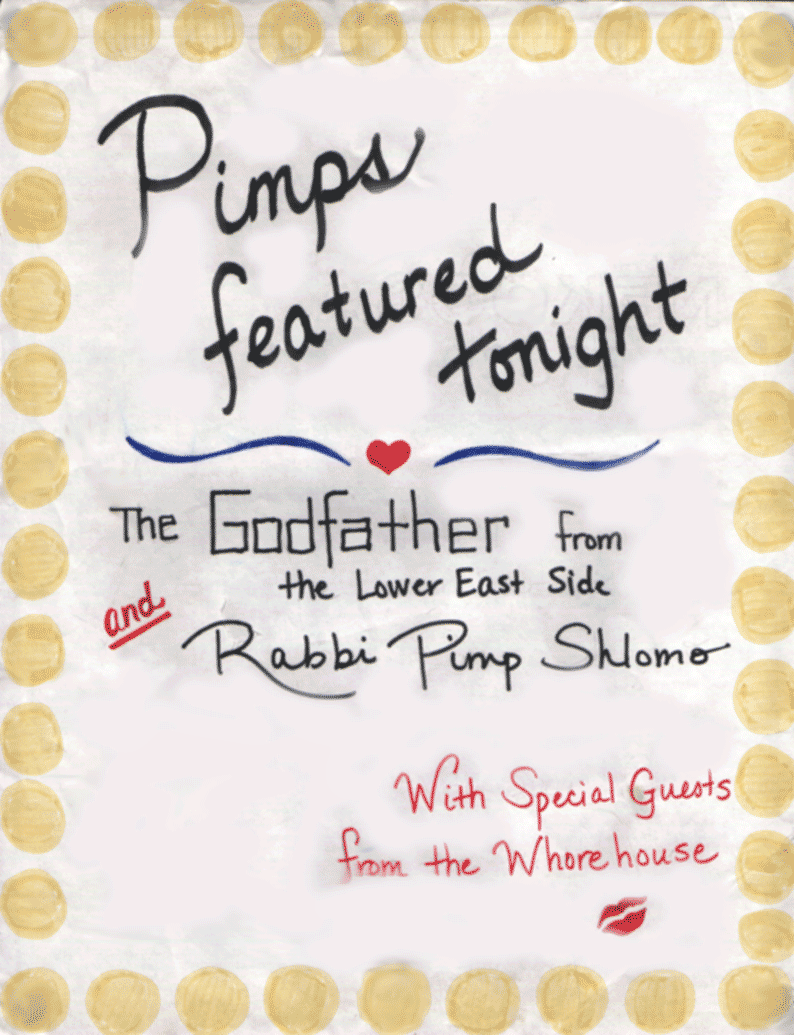 Pimps
featured
tonight
The Godfather from
the Lower East Side
and
Rabbi Pimp Shlomo
With Special Guests
from the Whorehouse